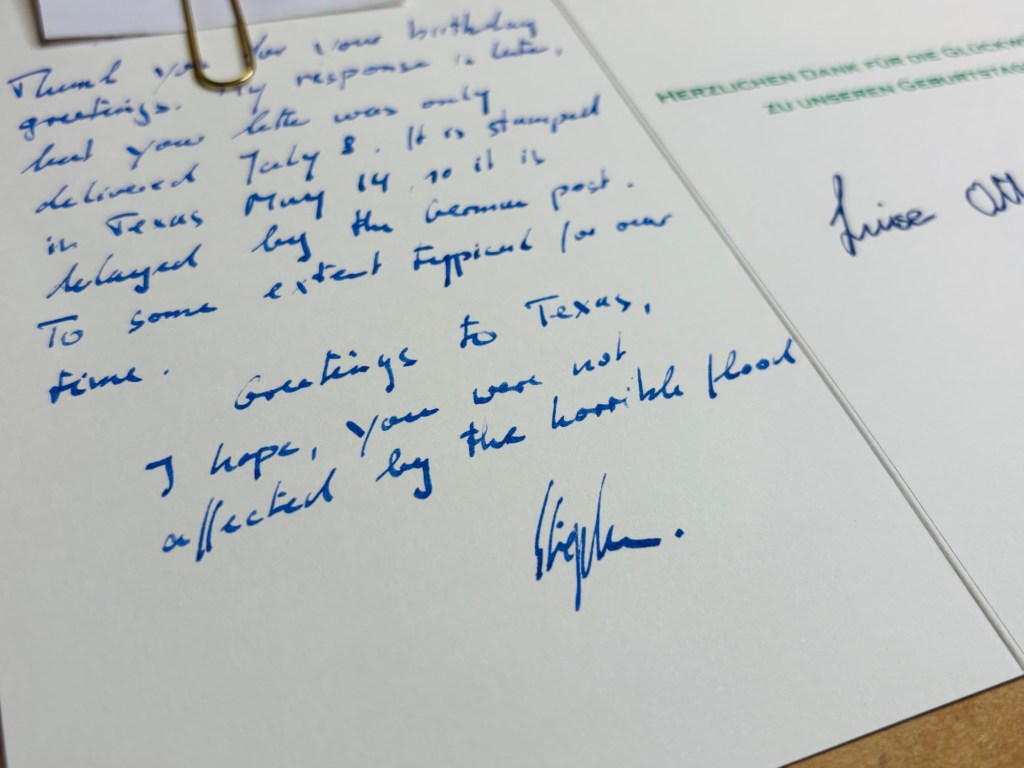 Thank you for your birthday
greetings. My response is late,
but your lette was only
delivered July 8. It is stamped
in Texas May 14, so it is
delayed by the German post.
To some extent typpical for our
time.
Greetings to Texas,
I hope, you were not
affected by the horrible flood
Stephan.
HERZLICHEN DANK FÜR DIE GLÜCKW
ZU UNSEREN GEBURTSTAG
Luise